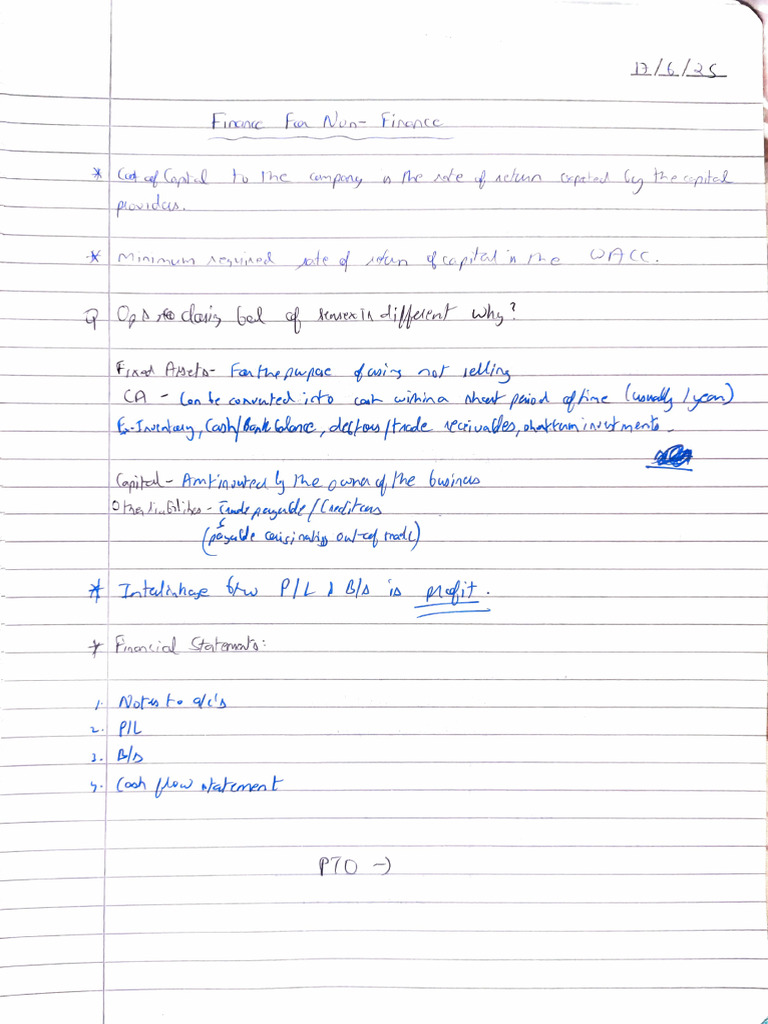 17/6/25
Finance For Non-Finance
* Cost of Capital to the company is the rate of return expected by the capital
providers.
* Minimum required rate of return of capital is the WACC.
Q closing bal of sensex is different why?
Fixed Assets - For the purpose of using not selling
CA - Can be converted into cash within a short period of time (usually 1 year)
Ex- Inventory, Cash/Bank balance, debtors/trade receivables, short term investments.
Capital - Amt invested by the owner of the business
Other liabilities - Trade payable/Creditors
(payable originating out of trade)
* Interlinkage btw P/L & B/S is profit.
* Financial Statements:
1. Notes to a/c's
2. P/L
3. B/S
4. Cash flow statement
PTO →